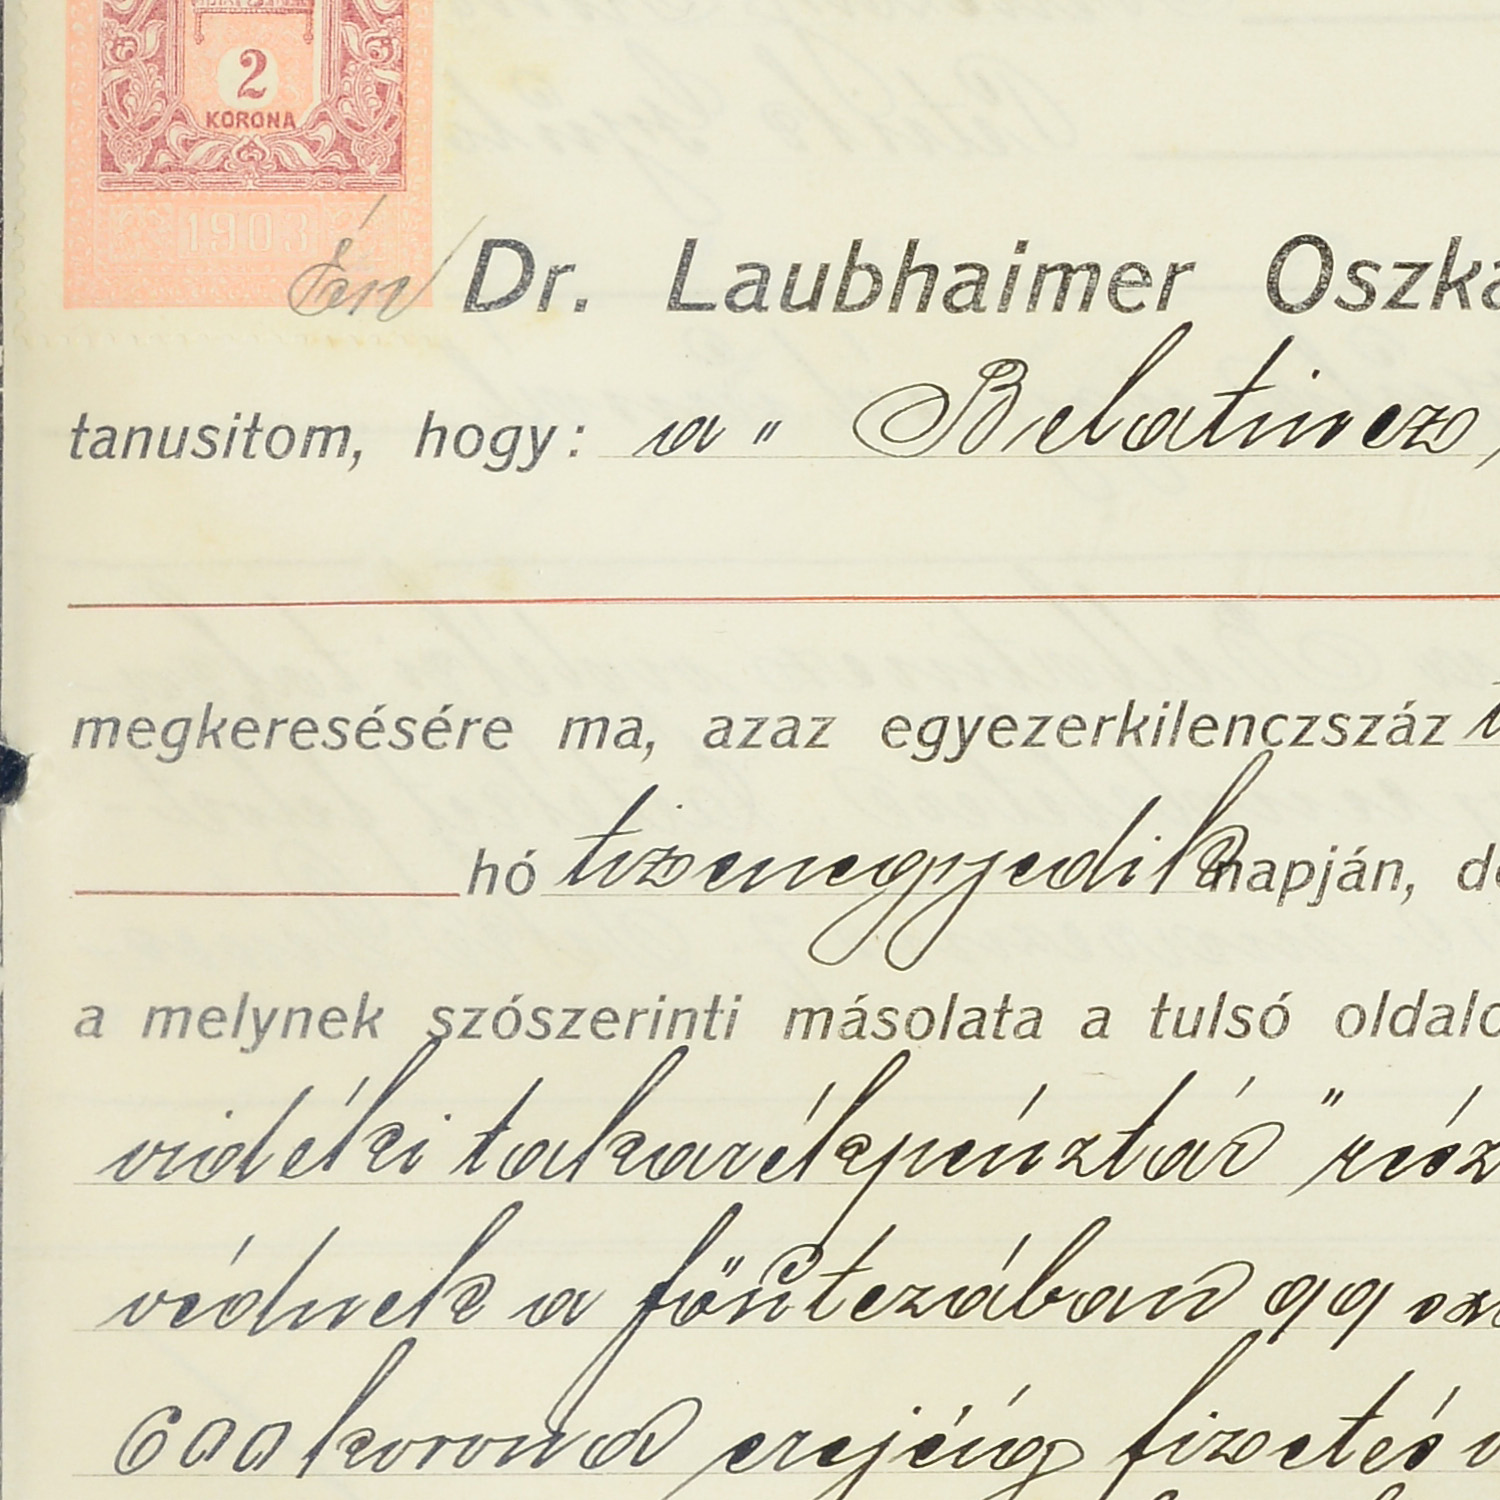 2
KORONA
1903
Én Dr. Laubhaimer Oszká
tanusitom, hogy: a „ Belatincz
megkeresésére ma, azaz egyezerkilenczszáz
hó tizenegyedik napján, de
a melynek szószerinti másolata a tulsó oldalo
vidéki takarékpénztár" rész
védnek a főűtezában 99
600 korona erejéig fizetés